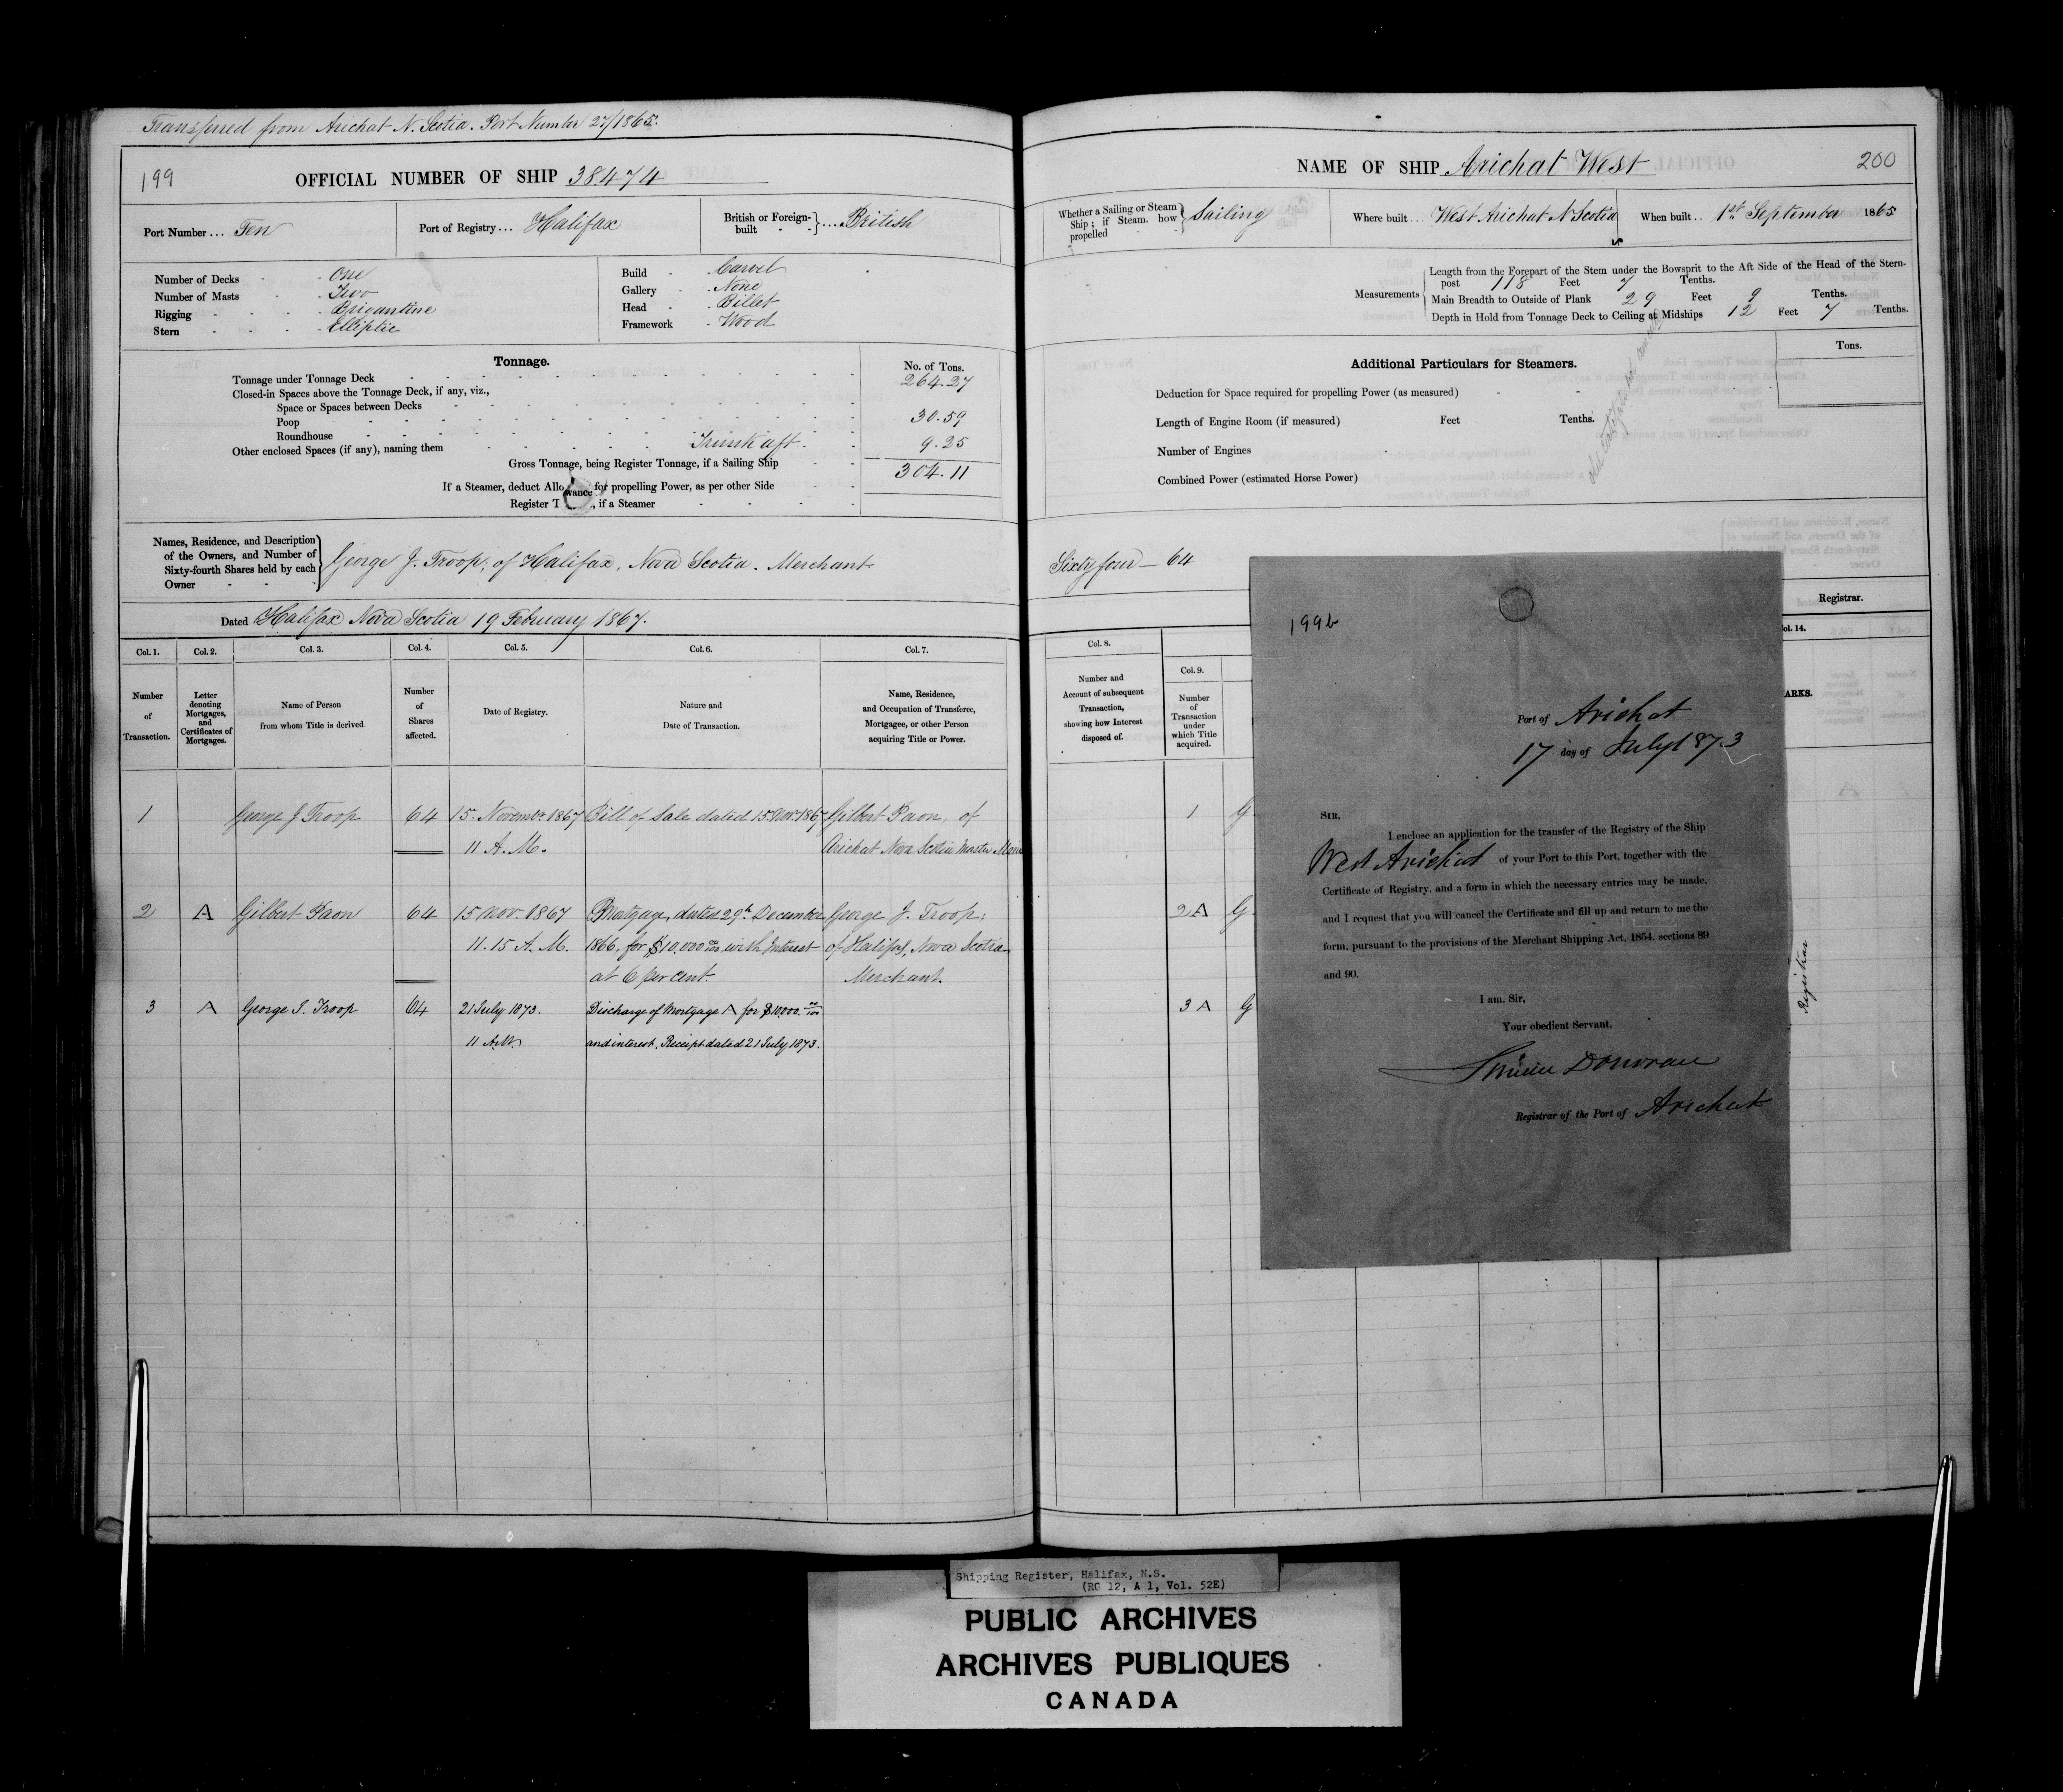 Transferred from Arichat N. Scotia. Port Number 27/1865.
199
OFFICIAL NUMBER OF SHIP 38474
Port Number ... Ten
Port of Registry ... Halifax
British or Foreign-built ... British
Number of Decks - One
Number of Masts - Two
Rigging - Brigantine
Stern - Elliptic
Build - Carvel
Gallery - None
Head - Billet
Framework - Wood
Tonnage.
No. of Tons.
Tonnage under Tonnage Deck 264.27
Closed-in Spaces above the Tonnage Deck, if any, viz.,
Space or Spaces between Decks
Poop 30.59
Roundhouse
Other enclosed Spaces (if any), naming them Trunk aft. 9.25
Gross Tonnage, being Register Tonnage, if a Sailing Ship 304.11
If a Steamer, deduct Allowance for propelling Power, as per other Side
Register T , if a Steamer
Names, Residence, and Description
of the Owners, and Number of
Sixty-fourth Shares held by each
Owner
George J. Troop; of Halifax, Nova Scotia. Merchant
Dated Halifax Nova Scotia 19 February 1867.
Col. 1. Col. 2. Col. 3. Col. 4. Col. 5. Col. 6. Col. 7.
Number of Transaction.
Letter denoting Mortgages, and Certificates of Mortgages.
Name of Person from whom Title is derived.
Number of Shares affected.
Date of Registry.
Nature and Date of Transaction.
Name, Residence, and Occupation of Transferee, Mortgagee, or other Person acquiring Title or Power.
1 George J Troop 64 15. November 1867 Bill of Sale dated 15 Nov. 1867 Gilbert Paon, of
11 A.M. Arichat Nova Scotia Master
2 A Gilbert Paon 64 15 Nov. 1867 Mortgage, dated 29th December George J. Troop;
11.15 A.M. 1866, for $10,000 00/100 with Interest of Halifax, Nova Scotia
at 6 per cent. Merchant.
3 A George J. Troop 64 21 July 1873. Discharge of Mortgage A for $10000. 00/100
11 A.M. and interest. Receipt dated 21 July 1873.
NAME OF SHIP Arichat West
200
Whether a Sailing or Steam
Ship; if Steam, how
propelled
Sailing
Where built ... West Arichat N Scotia
When built .. 1st September 1865
Measurements
Length from the Forepart of the Stem under the Bowsprit to the Aft Side of the Head of the Stern-
post 118 Feet 7 Tenths.
Main Breadth to Outside of Plank 29 Feet 9 Tenths.
Depth in Hold from Tonnage Deck to Ceiling at Midships 12 Feet 7 Tenths.
Additional Particulars for Steamers.
Tons.
Deduction for Space required for propelling Power (as measured)
Length of Engine Room (if measured) Feet Tenths.
Number of Engines
Combined Power (estimated Horse Power)
Sixty four — 64
Registrar.
Col. 8.
Col. 9.
ol. 14.
Number and
Account of subsequent
Transaction,
showing how Interest
disposed of.
Number
of
Transaction
under
which Title
acquired.
ARKS.
1 G
2 A G
3 A G
Registrar
199b
Port of Arichat
17 day of July 1873
SIR,
I enclose an application for the transfer of the Registry of the Ship
West Arichat of your Port to this Port, together with the
Certificate of Registry, and a form in which the necessary entries may be made,
and I request that you will cancel the Certificate and fill up and return to me the
form, pursuant to the provisions of the Merchant Shipping Act, 1854, sections 89
and 90.
I am, Sir,
Your obedient Servant,
Donovan
Registrar of the Port of Arichat
Shipping Register, Halifax, N.S.
(RG 12, A 1, Vol. 52E)
PUBLIC ARCHIVES
ARCHIVES PUBLIQUES
CANADA